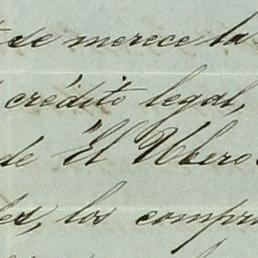 se merece la
crédito legal,
de "El Ubero
les, los compr